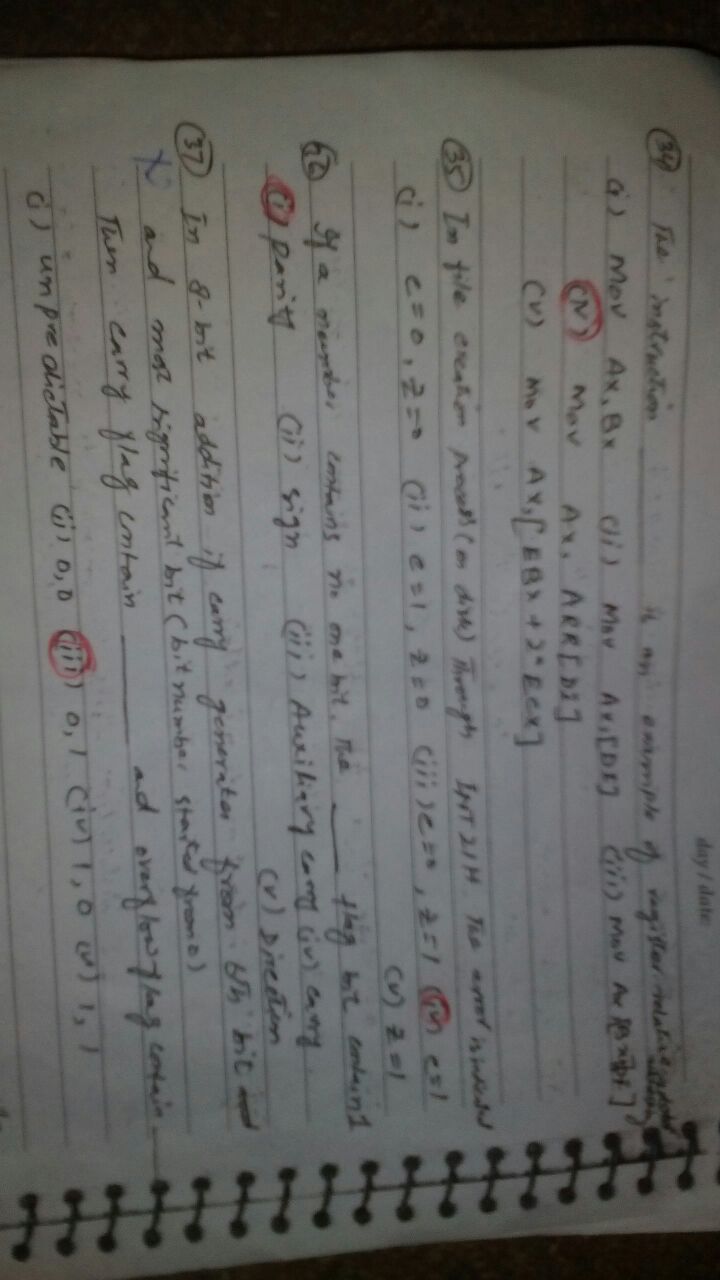 day/date
(34) The instruction ______ is an example of register relative
(i) MOV AX, BX (ii) MOV AX, [DI] (iii) MOV
(iv) MOV AX, ARR[DI]
(v) MOV AX, [EBX + 2*ECX]
(35) In file creation process (on disk) through INT 21H. The error is
(i) c=0, z=0 (ii) c=1, z=0 (iii) c=0, z=1 (iv) c=1
(v) z=1
If a number contains no one bit. The ____ flag bit contain 1
(i) parity (ii) sign (iii) Auxiliary carry (iv) carry
(v) Direction
(37) In 8-bit addition if carry generates from 6th bit
and most significant bit (bit number started from 0)
Then carry flag contain ______ ad overflow flag contain
(i) unpredictable (ii) 0,0 (iii) 0,1 (iv) 1,0 (v) 1,1